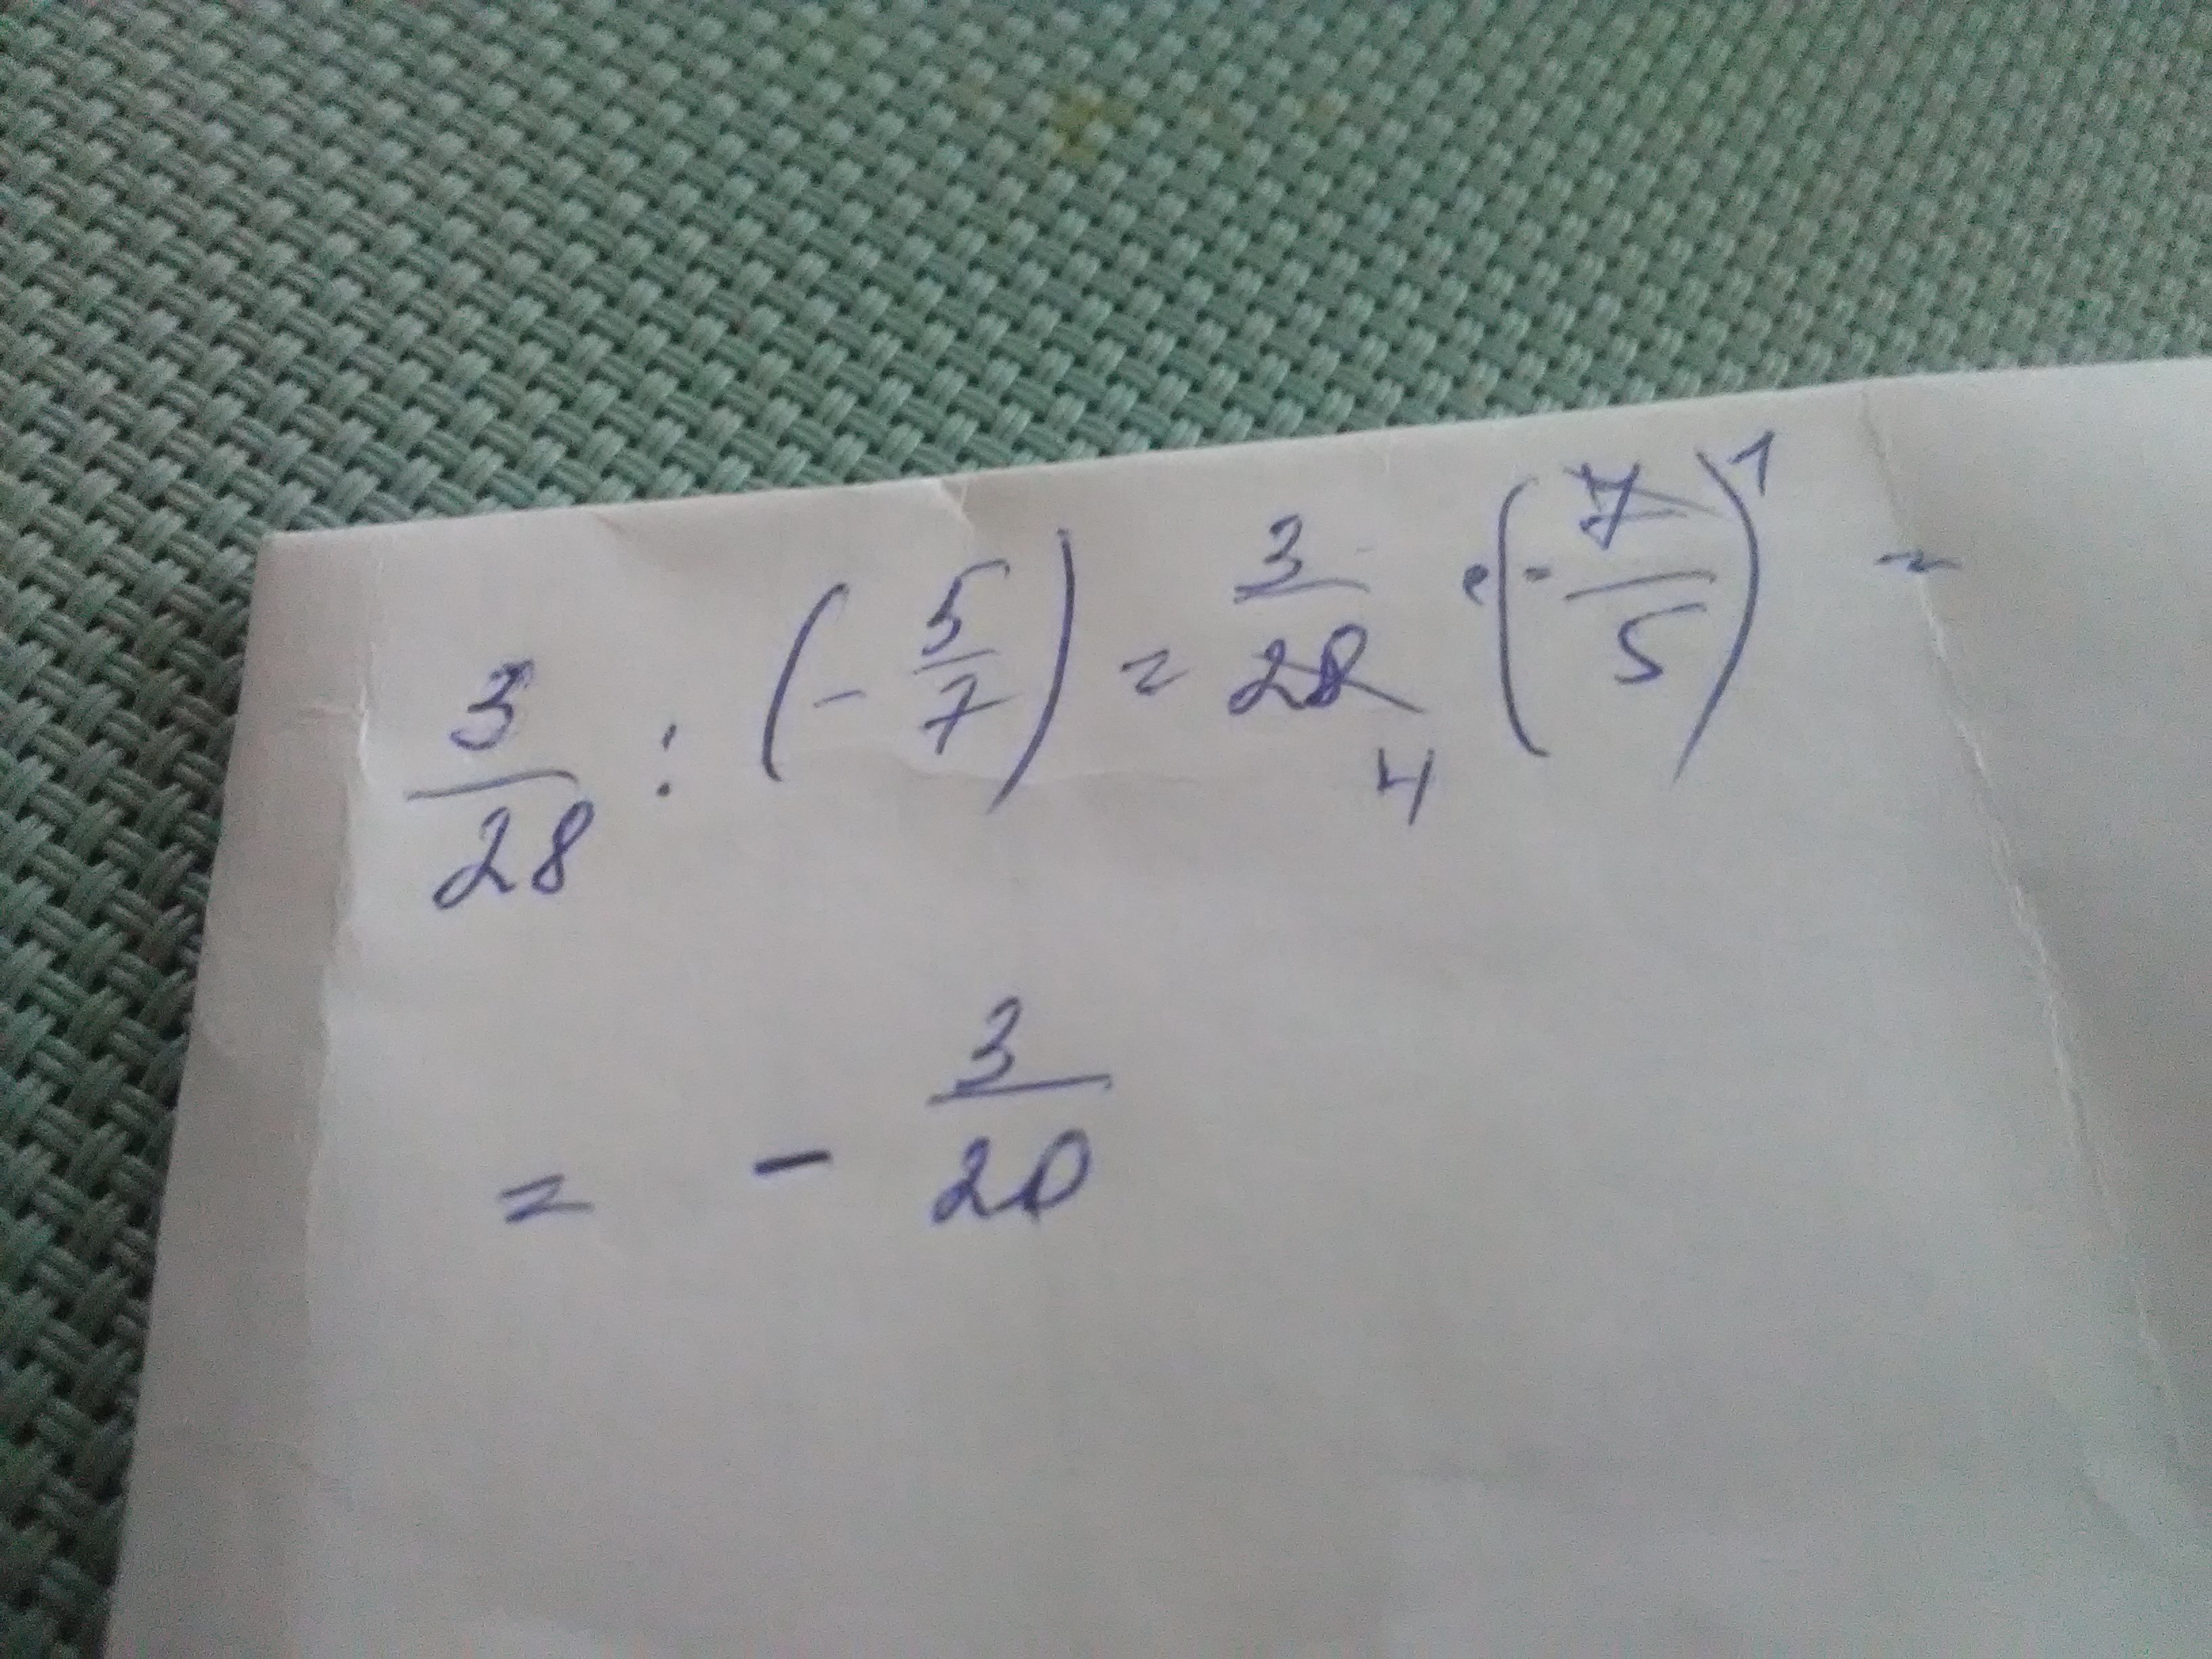 3/28 : (- 5/7) = 3/28 4 · (- 7/5) 1 =
= - 3/20